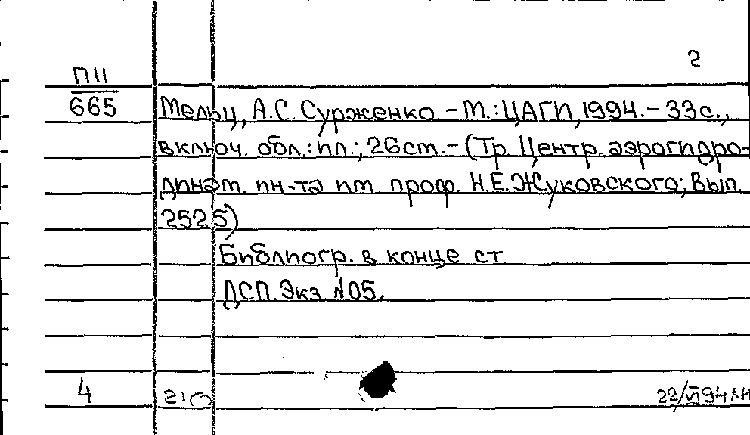 2
П11
665
Мельц, А.С. Сурженко - М.: ЦАГИ, 1994. - 33с.,
включ. обл.: ил.; 26см. - (Тр. Центр. аэрогидро-
динам. ин-та им. проф. Н.Е. Жуковского; Вып.
2525)
Библиогр. в конце ст
ДСП. Экз №05.
4
22/VI 94